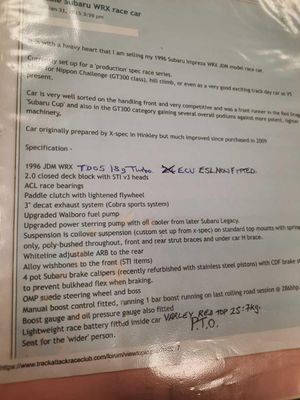 Subaru WRX race car
31, 2015 3:50 pm
is with a heavy heart that I am selling my 1996 Subaru Impreza WRX JDM model race car.
Currently set up for a 'production' spec race series.
for Nippon Challenge (GT300 class), hill climb, or even as a very good exciting track day car as VS
present.
Car is very well sorted on the handling front and very competitive and was a front runner in the Red
'Subaru Cup' and also in the GT300 category gaining several overall podiums against more potent,
machinery.
Car originally prepared by X-spec in Hinkley but much improved since purchased in 2009
Specification -
1996 JDM WRX TD05 18g Turbo. ECU ESL NOW FITTED.
2.0 closed deck block with STI v3 heads
ACL race bearings
Paddle clutch with lightened flywheel
3" decat exhaust system (Cobra sports system)
Upgraded Walboro fuel pump
Upgraded power steering pump with oil cooler from later Subaru Legacy.
Suspension is coilover suspension (custom set up from x-spec) on standard top mounts with spring
only, poly-bushed throughout, front and rear strut braces and under car H brace.
Whiteline adjustable ARB to the rear
Alloy wishbones to the front (STI items)
4 pot Subaru brake calipers (recently refurbished with stainless steel pistons) with CDF brake
to prevent bulkhead flex when braking.
OMP suede steering wheel and boss
Manual boost control fitted, running 1 bar boost running on last rolling road session @ 286bhp
Boost gauge and oil pressure gauge also fitted
Lightweight race battery fitted inside car VARLEY RED TOP 25 : 7kg.
Seat for the 'wider' person. P.T.O.
https://www.trackattackraceclub.com/forum/